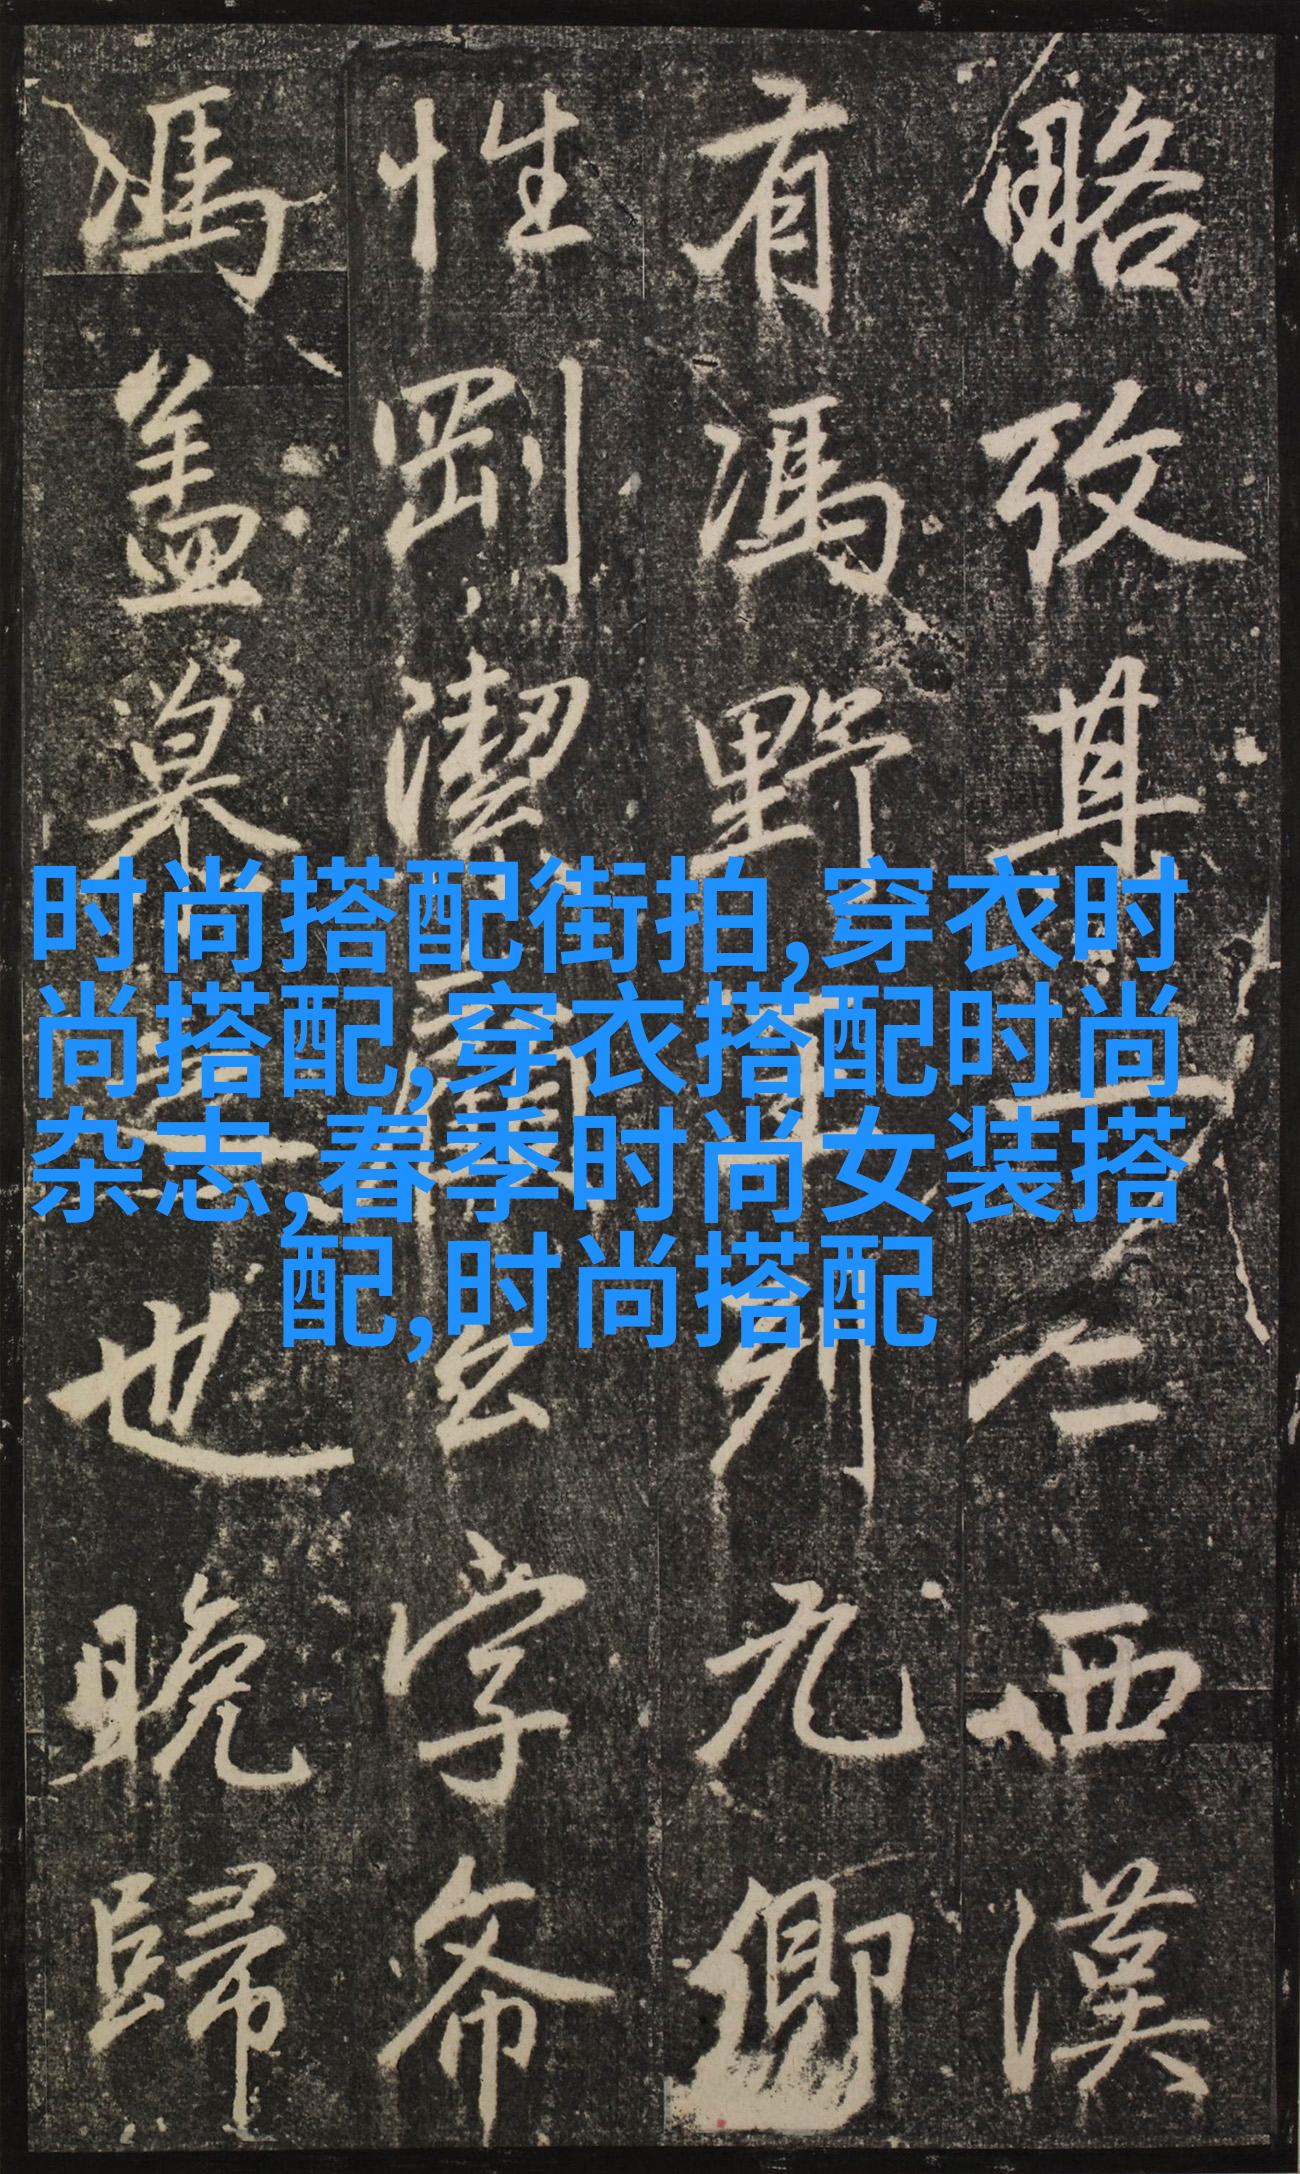 略攷其仁西漢
有馮野王列九卿
性剛潔字
馮盖慕之也晚歸
时尚搭配街拍,穿衣时
尚搭配,穿衣搭配时尚
杂志,春季时尚女装搭
配,时尚搭配